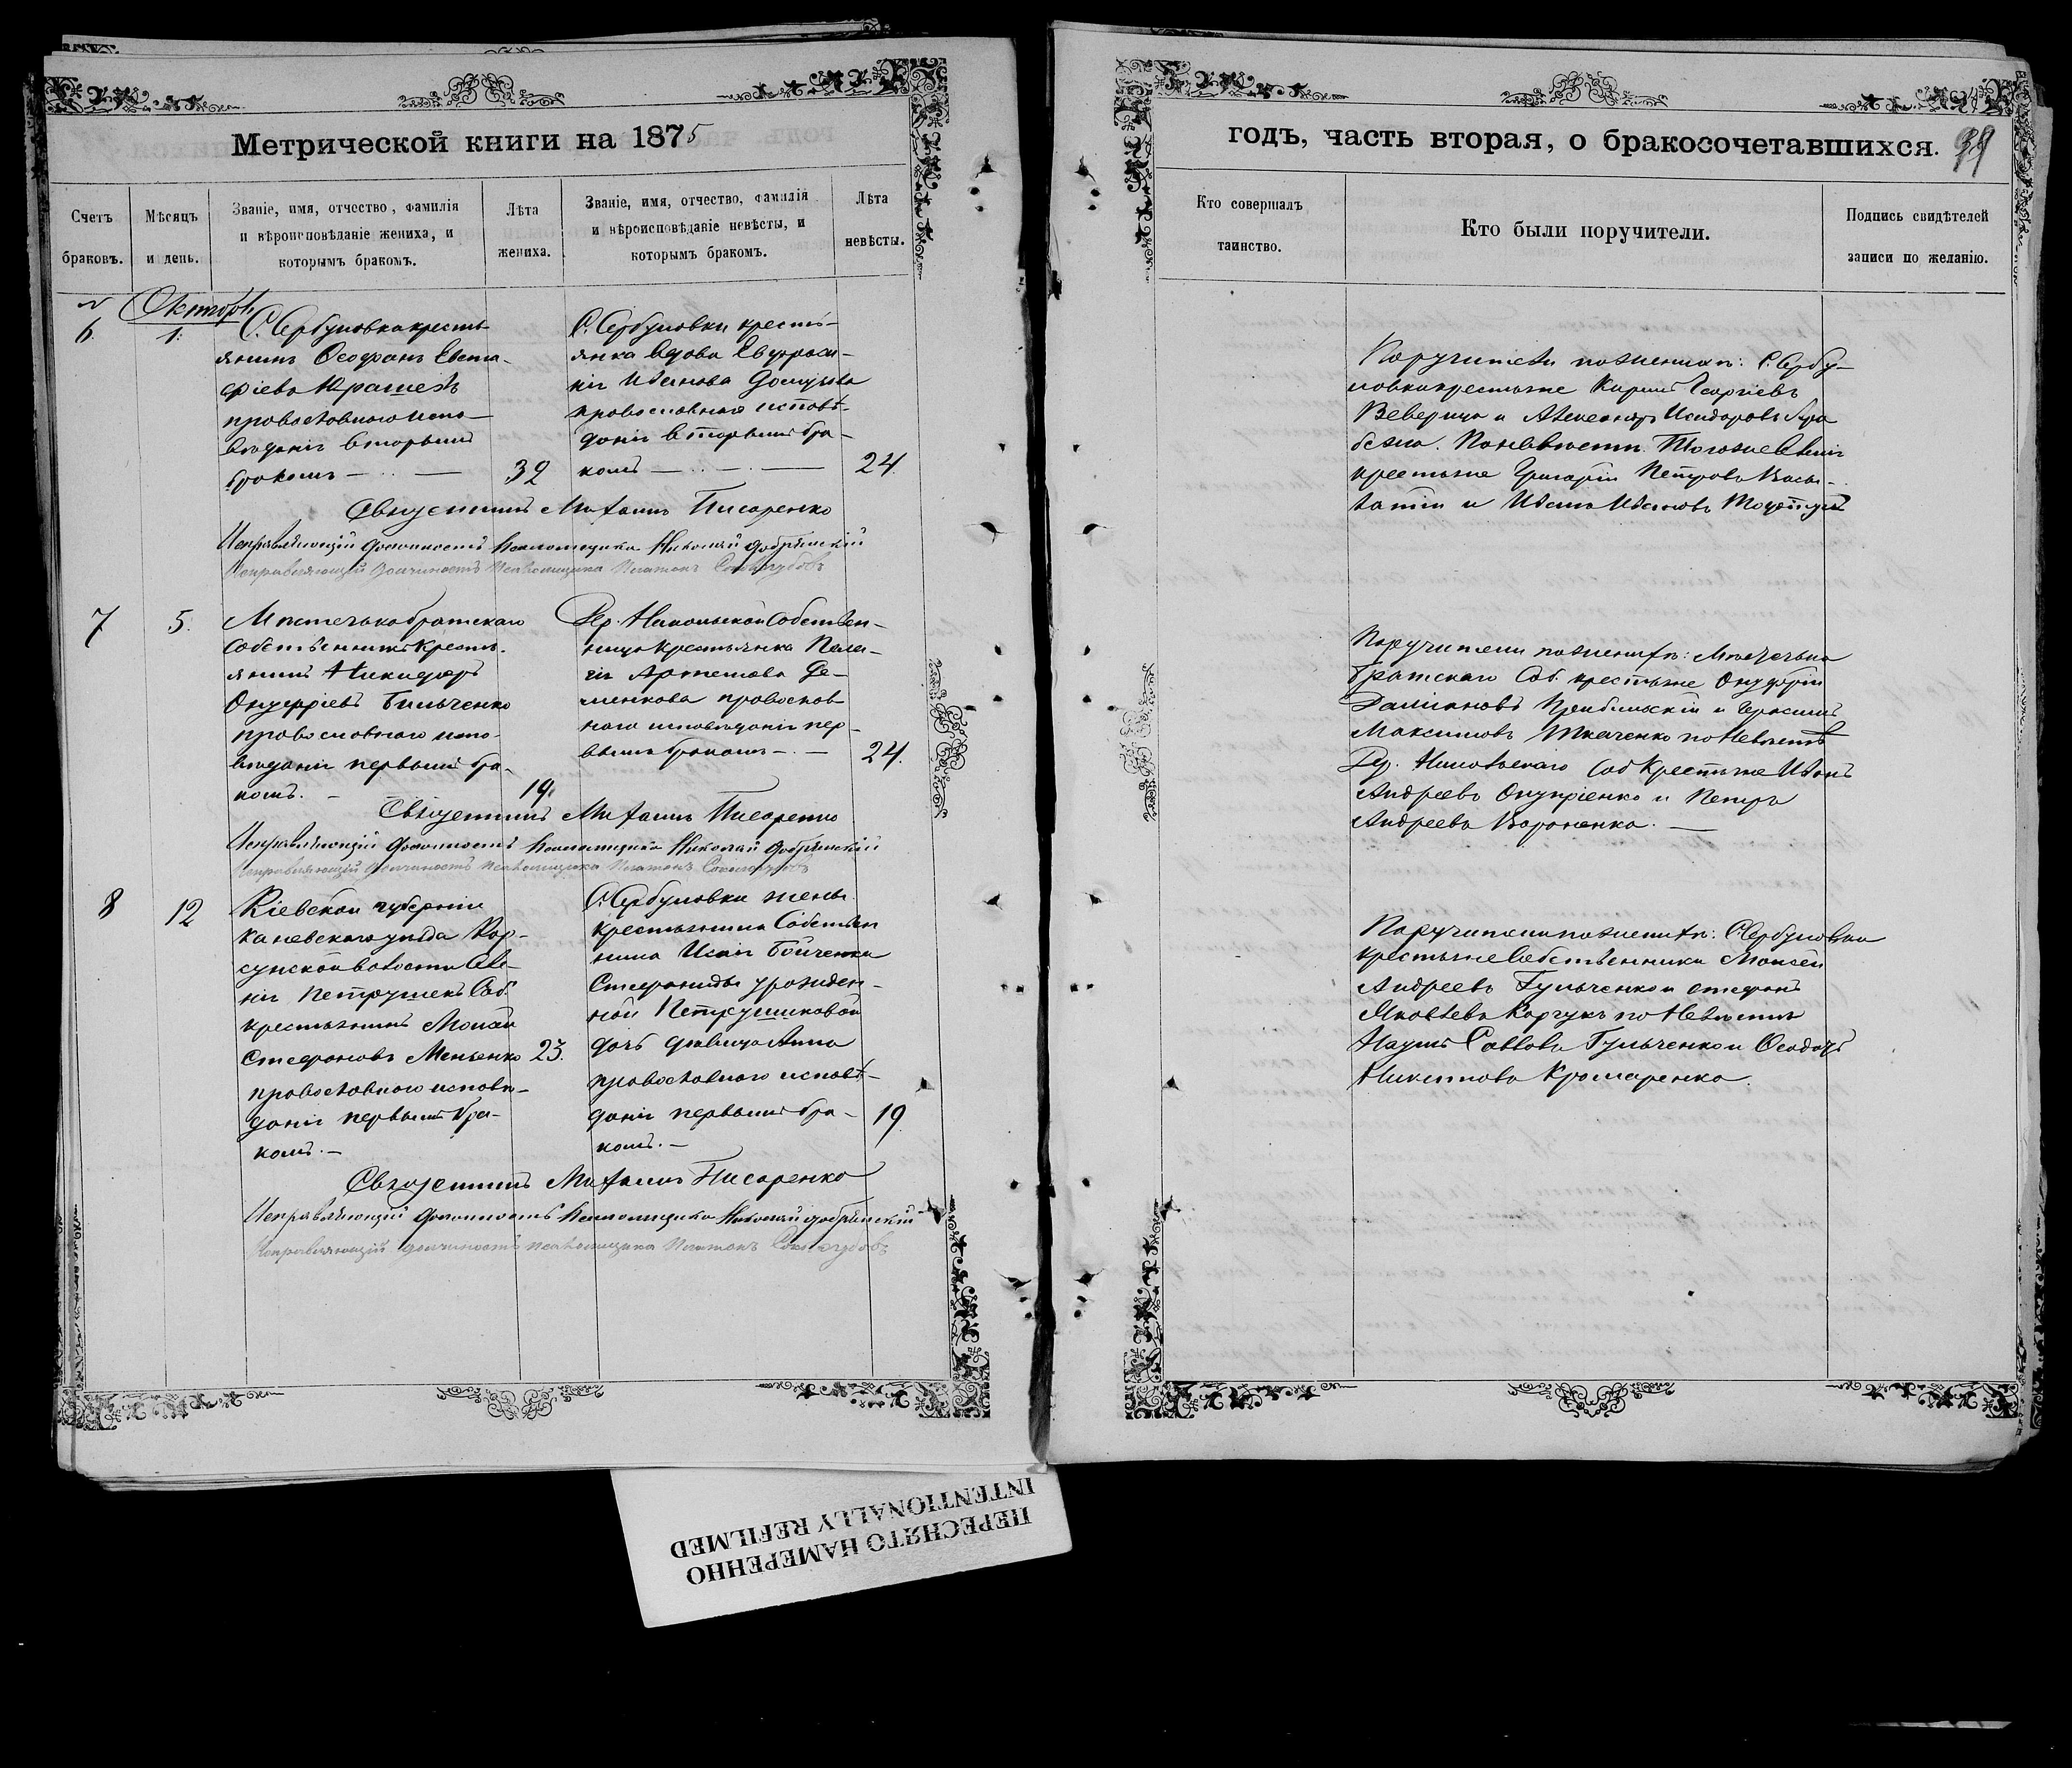 Метрической книги на 1875
Счетъ браковъ.
Мѣсяцъ и день.
Званіе, имя, отчество, фамилія
и вѣроисповѣданіе жениха, и
которымъ бракомъ.
Лѣта жениха.
Званіе, имя, отчество, фамилія
и вѣроисповѣданіе невѣсты, и
которымъ бракомъ.
Лѣта невѣсты.
Октября
6.
1.
С. Сербуловки кресть-
янинъ Ѳеофанъ Евста-
фіевъ
православнаго испо-
вѣданія вторымъ
бракомъ
32
С. Сербуловки кресть-
янка вдова Евфроси-
нія Иванова
православнаго исповѣ-
данія вторымъ бра-
комъ
24.
Священникъ Михаилъ Писаренко
Исправляющій должность псаломщика Николай Добрянскій
Исправляющій должность псаломщика Платонъ
7
5.
Мѣстечка братскаго
собственникъ кресть-
янинъ Никифоръ
Онуфріевъ Бильченко
православнаго испо-
вѣданія первымъ бра-
комъ.
19.
Дер. Никольской собствен-
ница крестьянка Пела-
гія Артемова Де-
менкова православ-
наго исповѣданія пер-
вымъ бракомъ
24.
Священникъ Михаилъ Писаренко
Исправляющій должность псаломщика Николай Добрянскій
Исправляющій должность псаломщика Платонъ
8
12
Кіевской губерніи
Каневскаго уѣзда Кор-
сунской волости селе-
нія Петрушекъ Соб.
крестьянинъ Моисей
Стефановъ Меньенко
православнаго исповѣ-
данія первымъ бра-
комъ.
23.
С. Сербуловки жены
крестьянина Собствен
ника Исаіи Бойченка
Стефаниды урожден-
ной Петрушиковой
дочь дѣвица Анна
православнаго исповѣ-
данія первымъ бра-
комъ.
19
Священникъ Михаилъ Писаренко
Исправляющій должность псаломщика Николай Добрянскій
Исправляющій должность псаломщика Платонъ
годъ, часть вторая, о бракосочетавшихся.
Кто совершалъ таинство.
Кто были поручители.
Подпись свидѣтелей записи по желанію.
Поручители по женихѣ: С. Сербу-
ловки крестьяне Кирилъ Георгіевъ
Веверица и Александръ Исидоровъ
По невѣстѣ
крестьяне Григорій Петровъ
и Иванъ Ивановъ
Поручители по женихѣ: Мѣстечка
братскаго Соб. крестьяне Онуфрій
Даміановъ и Герасимъ
Максимовъ Ткаченко по невѣстѣ
Дер. Никольскаго Соб крестьяне Иванъ
Андреевъ Онуприенко и Петръ
Андреевъ Вороненко.
Поручители по женихѣ: С. Сербуловки
крестьяне Собственники Моисей
Андреевъ Гульченко и Стефанъ
Яковлевъ Корчукъ по невѣстѣ
Наумъ Савовъ Гульченко и Ѳеодоръ
Никитовъ Крамаренко.
ПЕРЕСНЯТО НАМЕРЕННО
INTENTIONALLY REFILMED